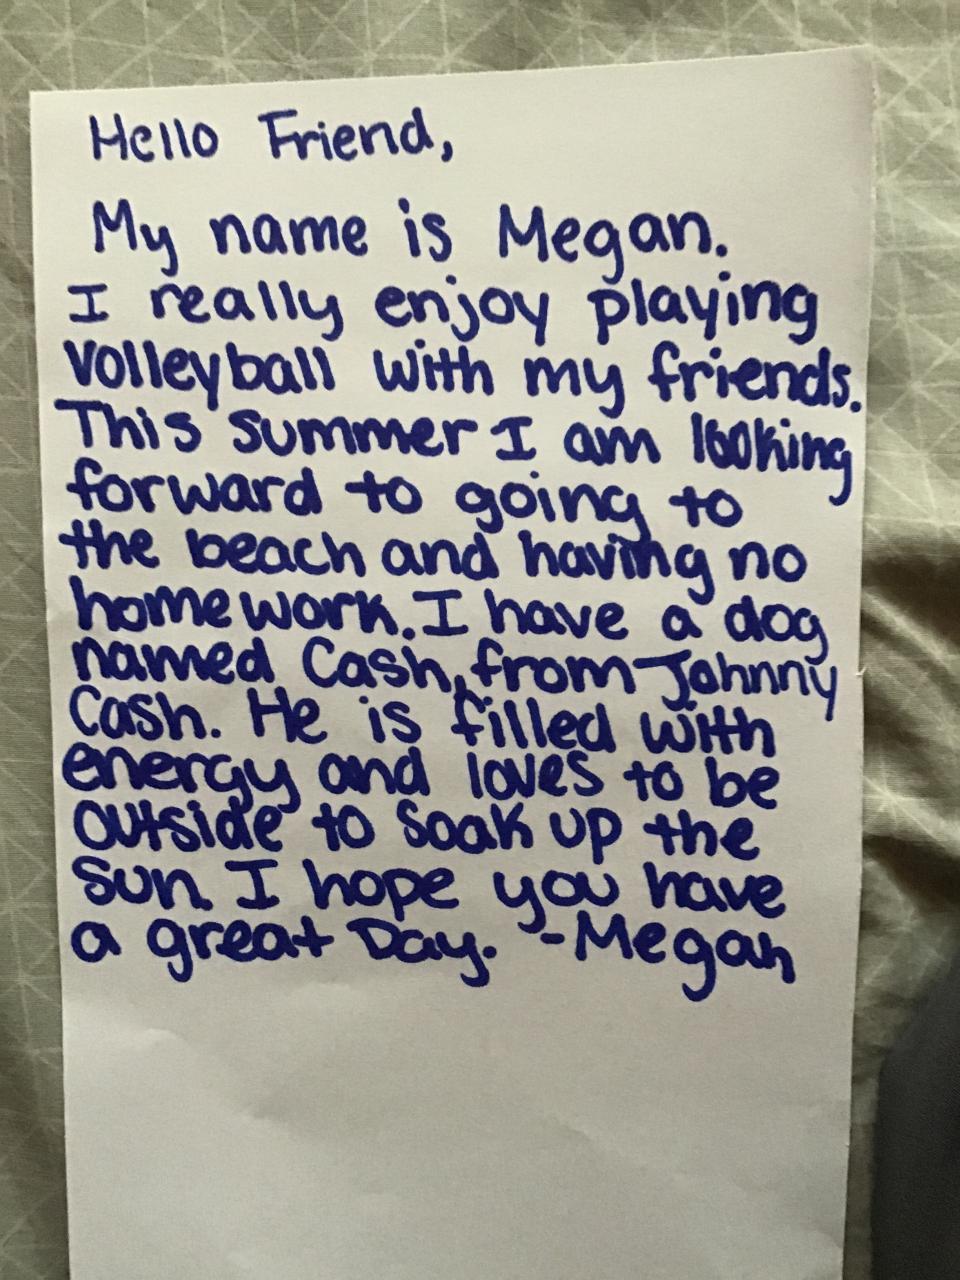 Hello Friend,
My name is Megan.
I really enjoy playing
volleyball with my friends.
This summer I am looking
forward to going to
the beach and having no
homework. I have a dog
named Cash, from Johnny
Cash. He is filled with
energy and loves to be
outside to soak up the
sun. I hope you have
a great Day. -Megan